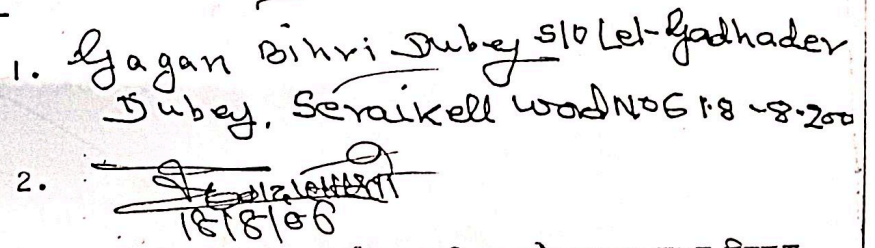 1. Gagan Bihri Dubey S/O Let-Gadhader
Dubey, Seraikell word No 6 18-8-200
2.
18/8/06